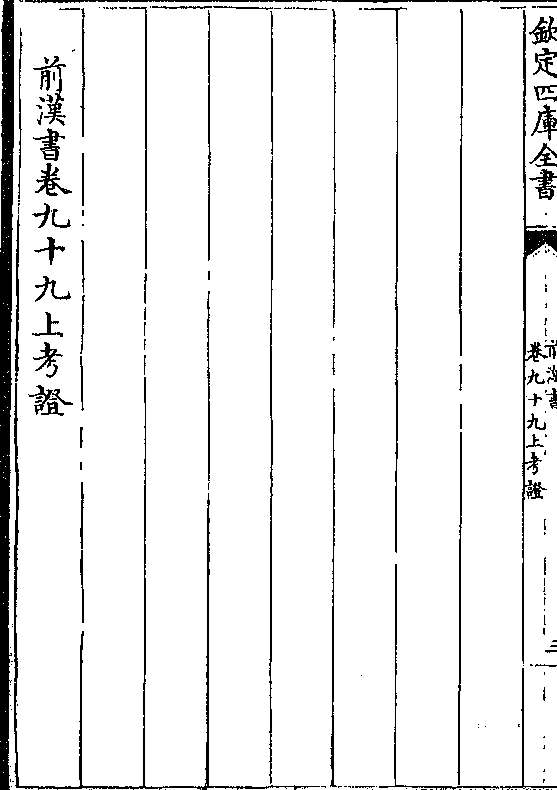 欽定四庫全書
前漢書
卷九十九上考證
三
前漢書卷九十九上考證